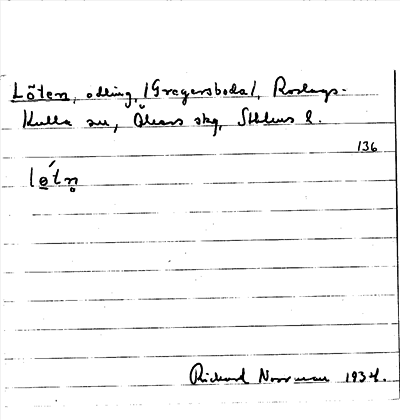 Löten, odling, /Gregersboda/, Roslags-
Kulla sn, Åkers skg, Sthlms l.
136
lø´tn̥
Richard Norrman 1934.